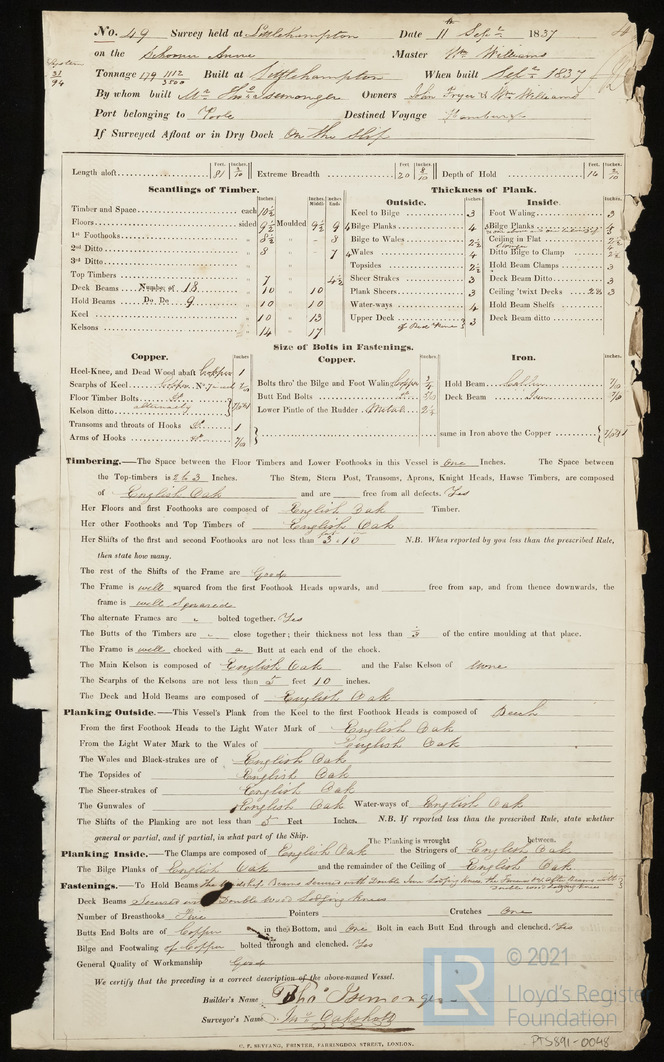 No. 49 Survey held at Littlehampton Date 11th Sepr. 1837
on the Schooner Anne Master Wm. Williams
Tonnage 179 Built at Littlehampton When built Sepr. 1837
By whom built Mr. Thos. Isemonger Owners John Fryer & Wm. Williams
Port belonging to Poole Destined Voyage
If Surveyed Afloat or in Dry Dock On the Slip
Length aloft 81 Extreme Breadth 20 Depth of Hold 14
Scantlings of Timber.
Timber and Space each 10½
Floors sided 9½ Moulded 9½ 9
1st Foothooks 8½ 8
2nd Ditto 8 7
3rd Ditto
Top Timbers 7 4½
Deck Beams Number of 18 10 10
Hold Beams Do. Do. 9 10 10
Keel 10 13
Kelsons 14 17
Thickness of Plank.
Outside.
Keel to Bilge 3
Bilge Planks 4
Bilge to Wales 2½
Wales 4
Topsides 2½
Sheer Strakes 3
Plank Sheers 3
Water-ways 4
Upper Deck 3
Inside.
Foot Waling 3
Bilge Planks
Ceiling in Flat
Ditto Bilge to Clamp
Hold Beam Clamps 3
Deck Beam Ditto 3
Ceiling 'twixt Decks
Hold Beam Shelfs
Deck Beam ditto
Size of Bolts in Fastenings.
Copper.
Heel-Knee, and Dead Wood abaft Copper 1
Scarphs of Keel Copper No. 7
Floor Timber Bolts Do.
Kelson ditto alternately
Transoms and throats of Hooks Do. 1
Arms of Hooks Do. 7/10
Copper.
Bolts thro' the Bilge and Foot Waling Copper ¾
Butt End Bolts
Lower Pintle of the Rudder Metal 2¼
Iron.
Hold Beam 7/10
Deck Beam 7/10
same in Iron above the Copper
Timbering.—The Space between the Floor Timbers and Lower Foothooks in this Vessel is One Inches. The Space between
the Top-timbers is 2 & 3 Inches. The Stem, Stern Post, Transoms, Aprons, Knight Heads, Hawse Timbers, are composed
of English Oak and are free from all defects. Yes
Her Floors and first Foothooks are composed of English Oak Timber.
Her other Foothooks and Top Timbers of English Oak
Her Shifts of the first and second Foothooks are not less than 3.10 N.B. When reported by you less than the prescribed Rule,
then state how many.
The rest of the Shifts of the Frame are Good
The Frame is well squared from the first Foothook Heads upwards, and free from sap, and from thence downwards, the
frame is well squared
The alternate Frames are bolted together. Yes
The Butts of the Timbers are close together; their thickness not less than ⅓ of the entire moulding at that place.
The Frame is well chocked with a Butt at each end of the chock.
The Main Kelson is composed of English Oak and the False Kelson of None
The Scarphs of the Kelsons are not less than 5 feet 10 inches.
The Deck and Hold Beams are composed of English Oak
Planking Outside.—This Vessel's Plank from the Keel to the first Foothook Heads is composed of Beech
From the first Foothook Heads to the Light Water Mark of English Oak
From the Light Water Mark to the Wales of English Oak
The Wales and Black-strakes are of English Oak
The Topsides of English Oak
The Sheer-strakes of English Oak
The Gunwales of English Oak Water-ways of English Oak
The Shifts of the Planking are not less than 5 Feet Inches. N.B. If reported less than the prescribed Rule, state whether
general or partial, and if partial, in what part of the Ship. The Planking is wrought between.
Planking Inside.—The Clamps are composed of English Oak the Stringers of English Oak
The Bilge Planks of English Oak and the remainder of the Ceiling of English Oak
Fastenings.—To Hold Beams The Midship Beams secured with Double Iron Lodging Knees
Double Wood Lodging Knees
Deck Beams Secured with Double Wood Lodging Knees
Number of Breasthooks Five Pointers Crutches One
Butts End Bolts are of Copper in the Bottom, and One Bolt in each Butt End through and clenched. Yes
Bilge and Footwaling of Copper bolted through and clenched. Yes
General Quality of Workmanship Good
We certify that the preceding is a correct description of the above-named Vessel.
Builder's Name Thos. Isemonger
Surveyor's Name
C. F. SEYFANG, PRINTER, FARRINGDON STREET, LONDON.
LR © 2021
Lloyd's Register
Foundation
PTS891-0048